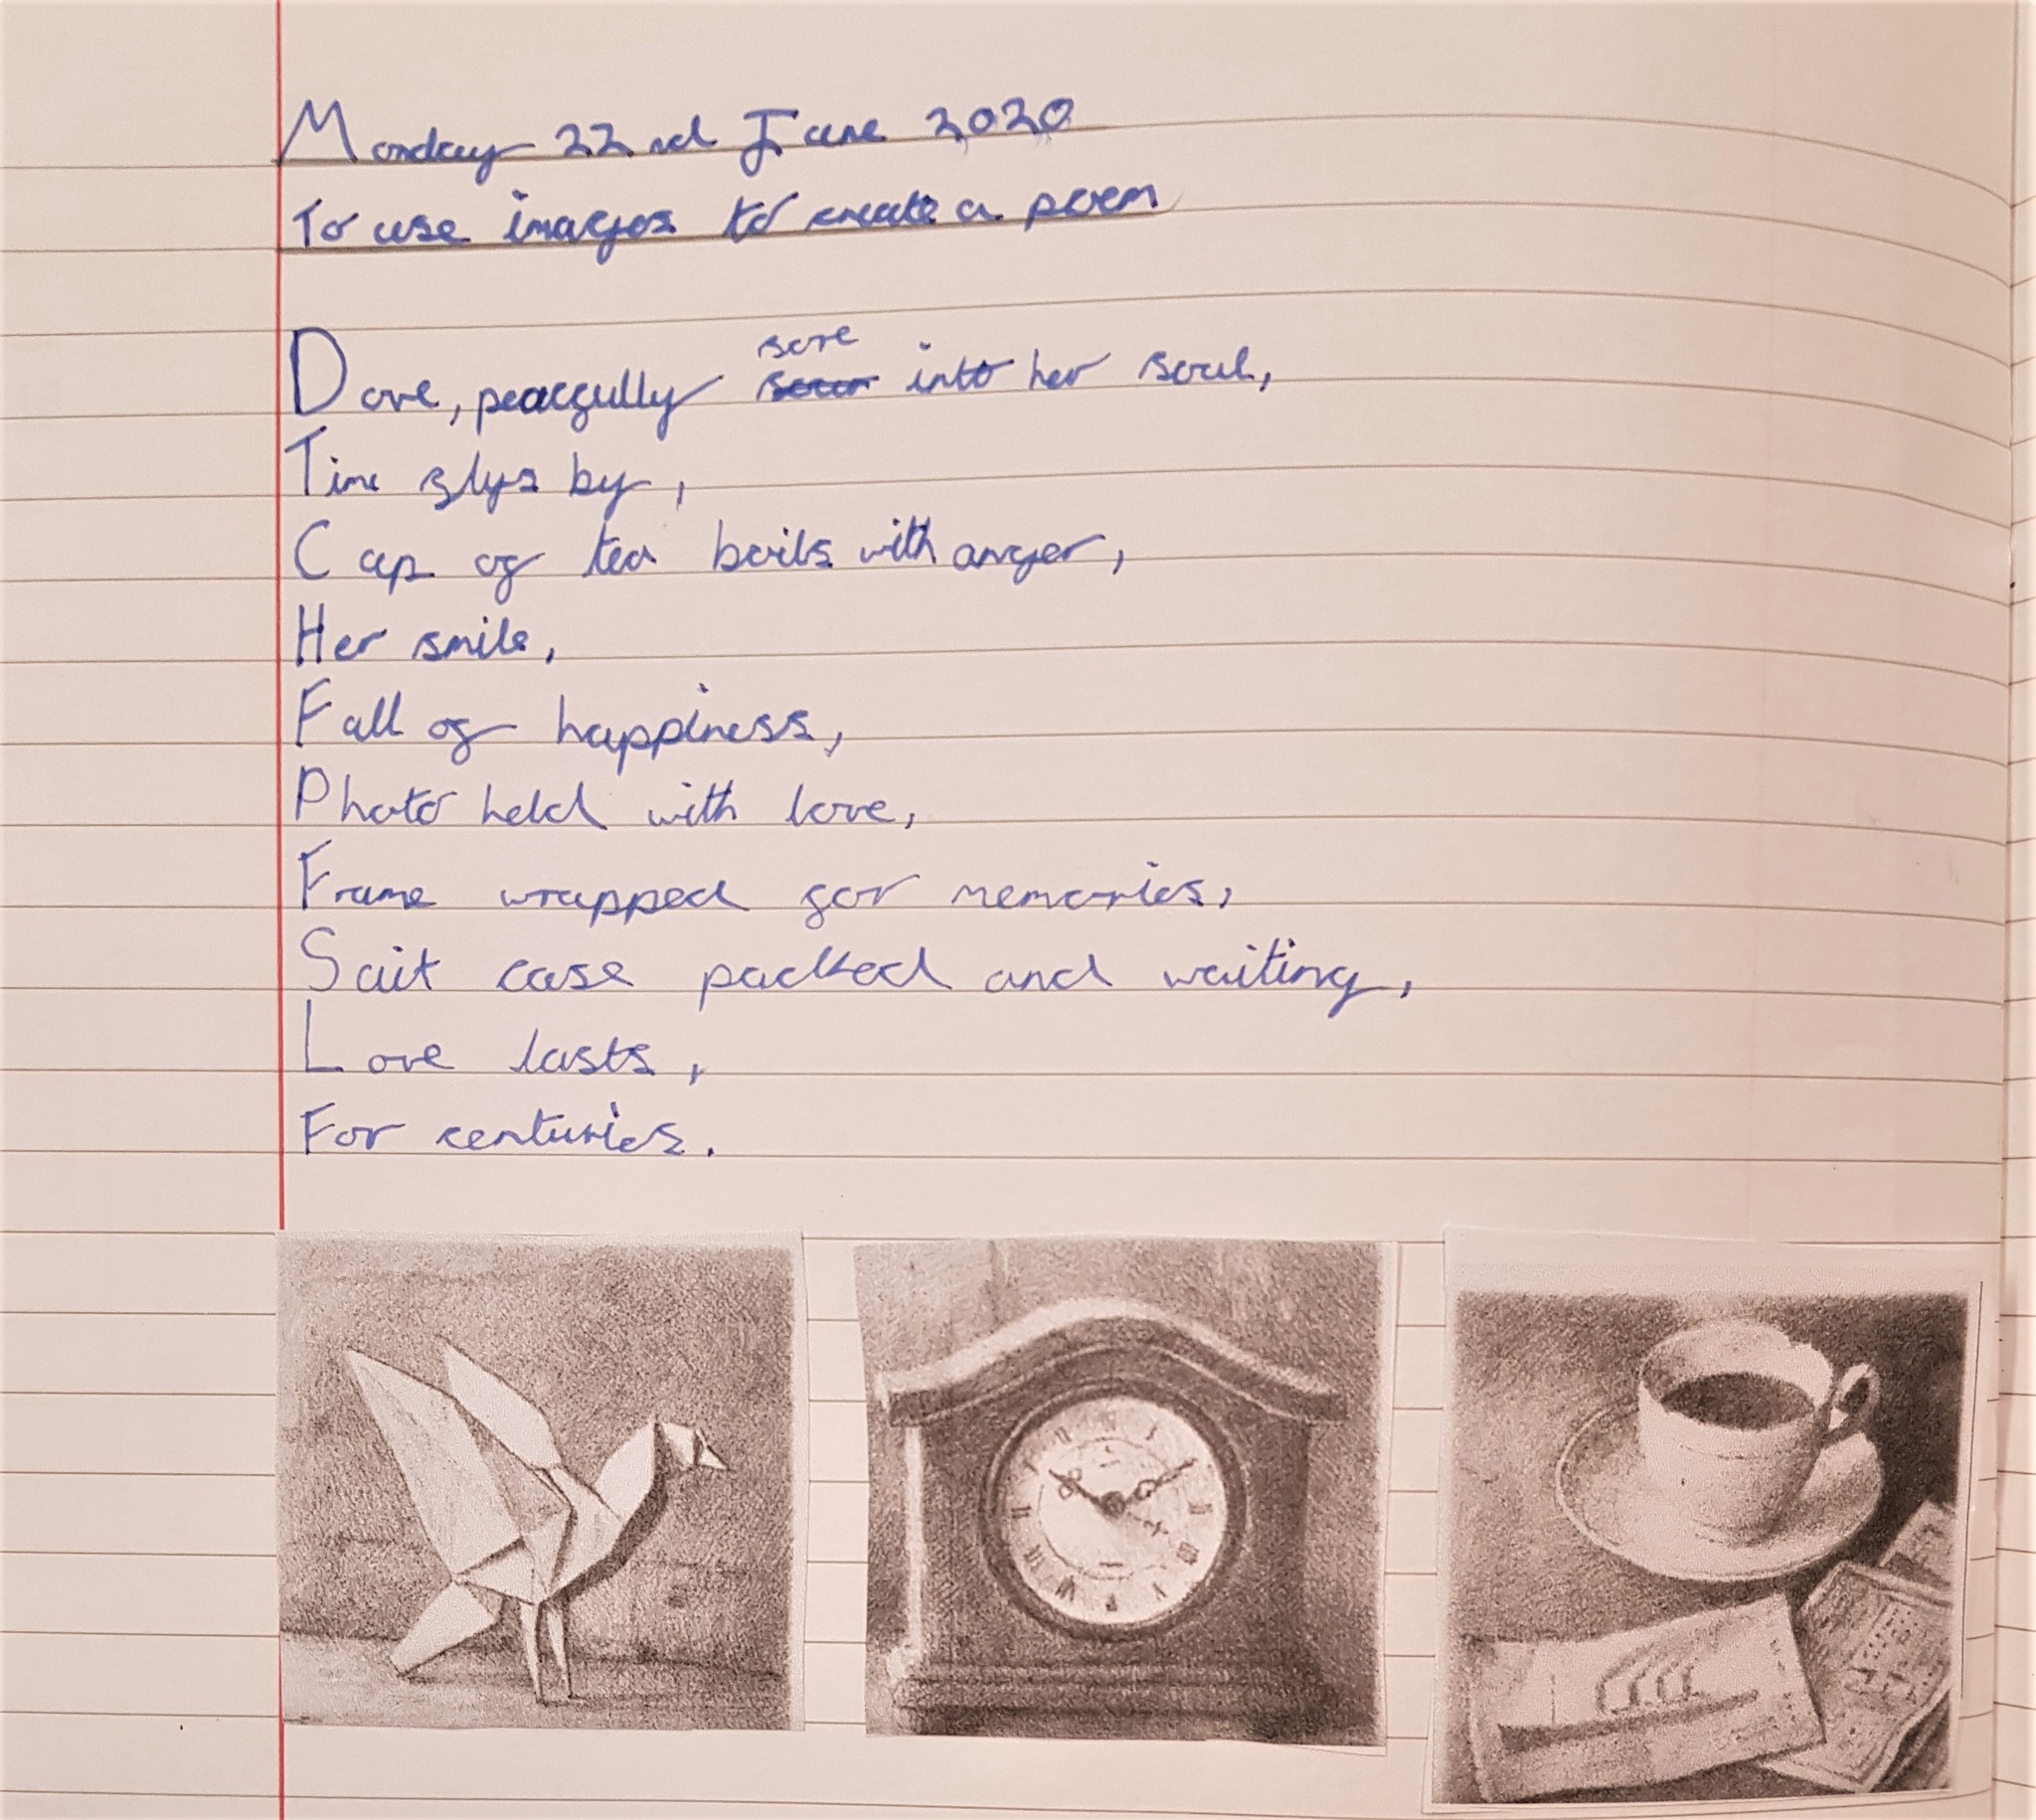 Monday 22nd June 2020
To use images to create a poem
Dove, peacfully sore into her soul,
Time flys by,
Cup of tea boils with anger,
Her smile,
Full of happiness,
Photo held with love,
Frame wrapped for memories,
Suit case packed and waiting,
Love lasts,
For centuries.